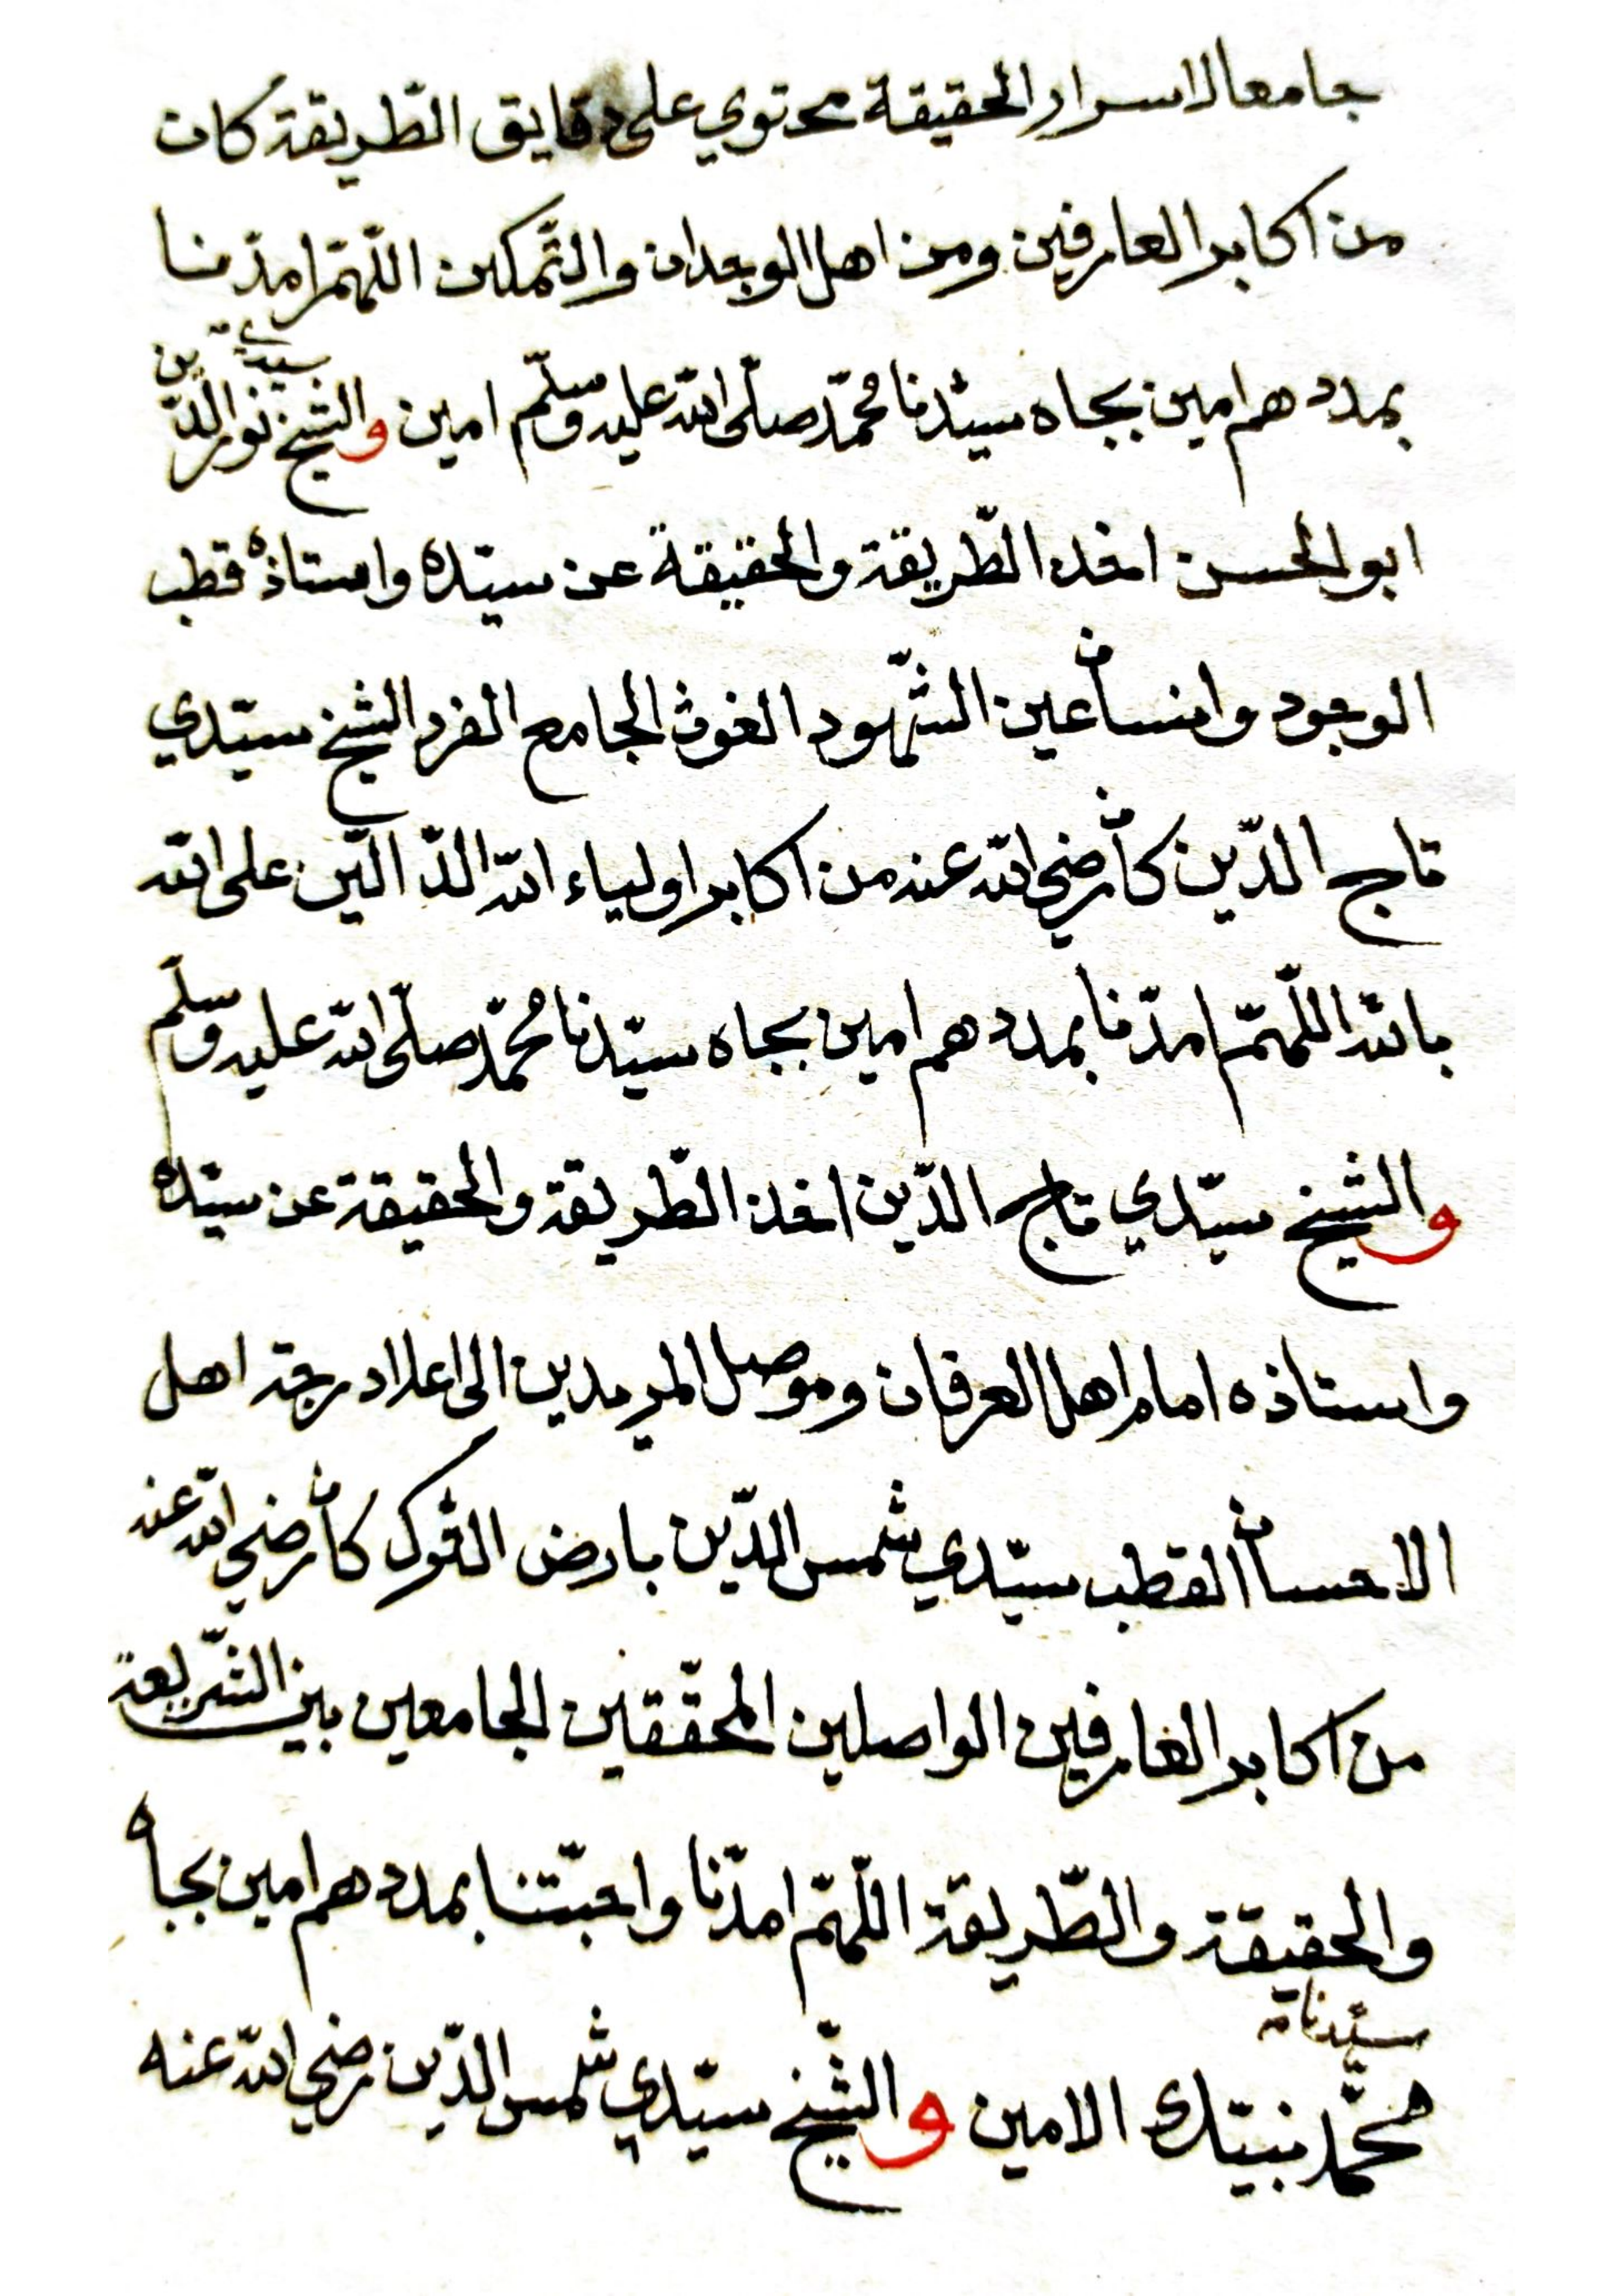 جامعا لاسرار الحقيقة محتوي على دقايق الطّريقة كان
من اكابر العارفين ومن اهل الوجدان والتّمكين اللّهمّ امدّنا
بمددهم امين بجاه سيّدنا محمّد صلّى الله عليه وسلّم امين والشيخ سيدي نور الدّين
ابو الحسن اخذ الطّريقة والحقيقة عن سيّده واستاذه قطب
الوجود وانسان عين الشّهود الغوث الجامع الفرد الشيخ سيّدي
تاج الدّين كان رضي الله عنه من اكابر اولياء الله الدّالّين على الله
بالله اللّهمّ امدّنا بمددهم امين بجاه سيّدنا محمّد صلّى الله عليه وسلّم
والشيخ سيّدي تاج الدّين اخذ الطّريقة والحقيقة عن سيّده
واستاذه امام اهل العرفان وموصل المريدين الى اعلا درجة اهل
الاحسان القطب سيّدي شمس الدّين بارض التّرك كان رضي الله عنه
من اكابر العارفين الواصلين المحقّقين الجامعين بين الشّريعة
والحقيقة والطّريقة اللّهمّ امدّنا واحبّتنا بمددهم امين بجاه
سيّدنا
محمّد نبيّك الامين والشّيخ سيّدي شمس الدّين رضي الله عنه